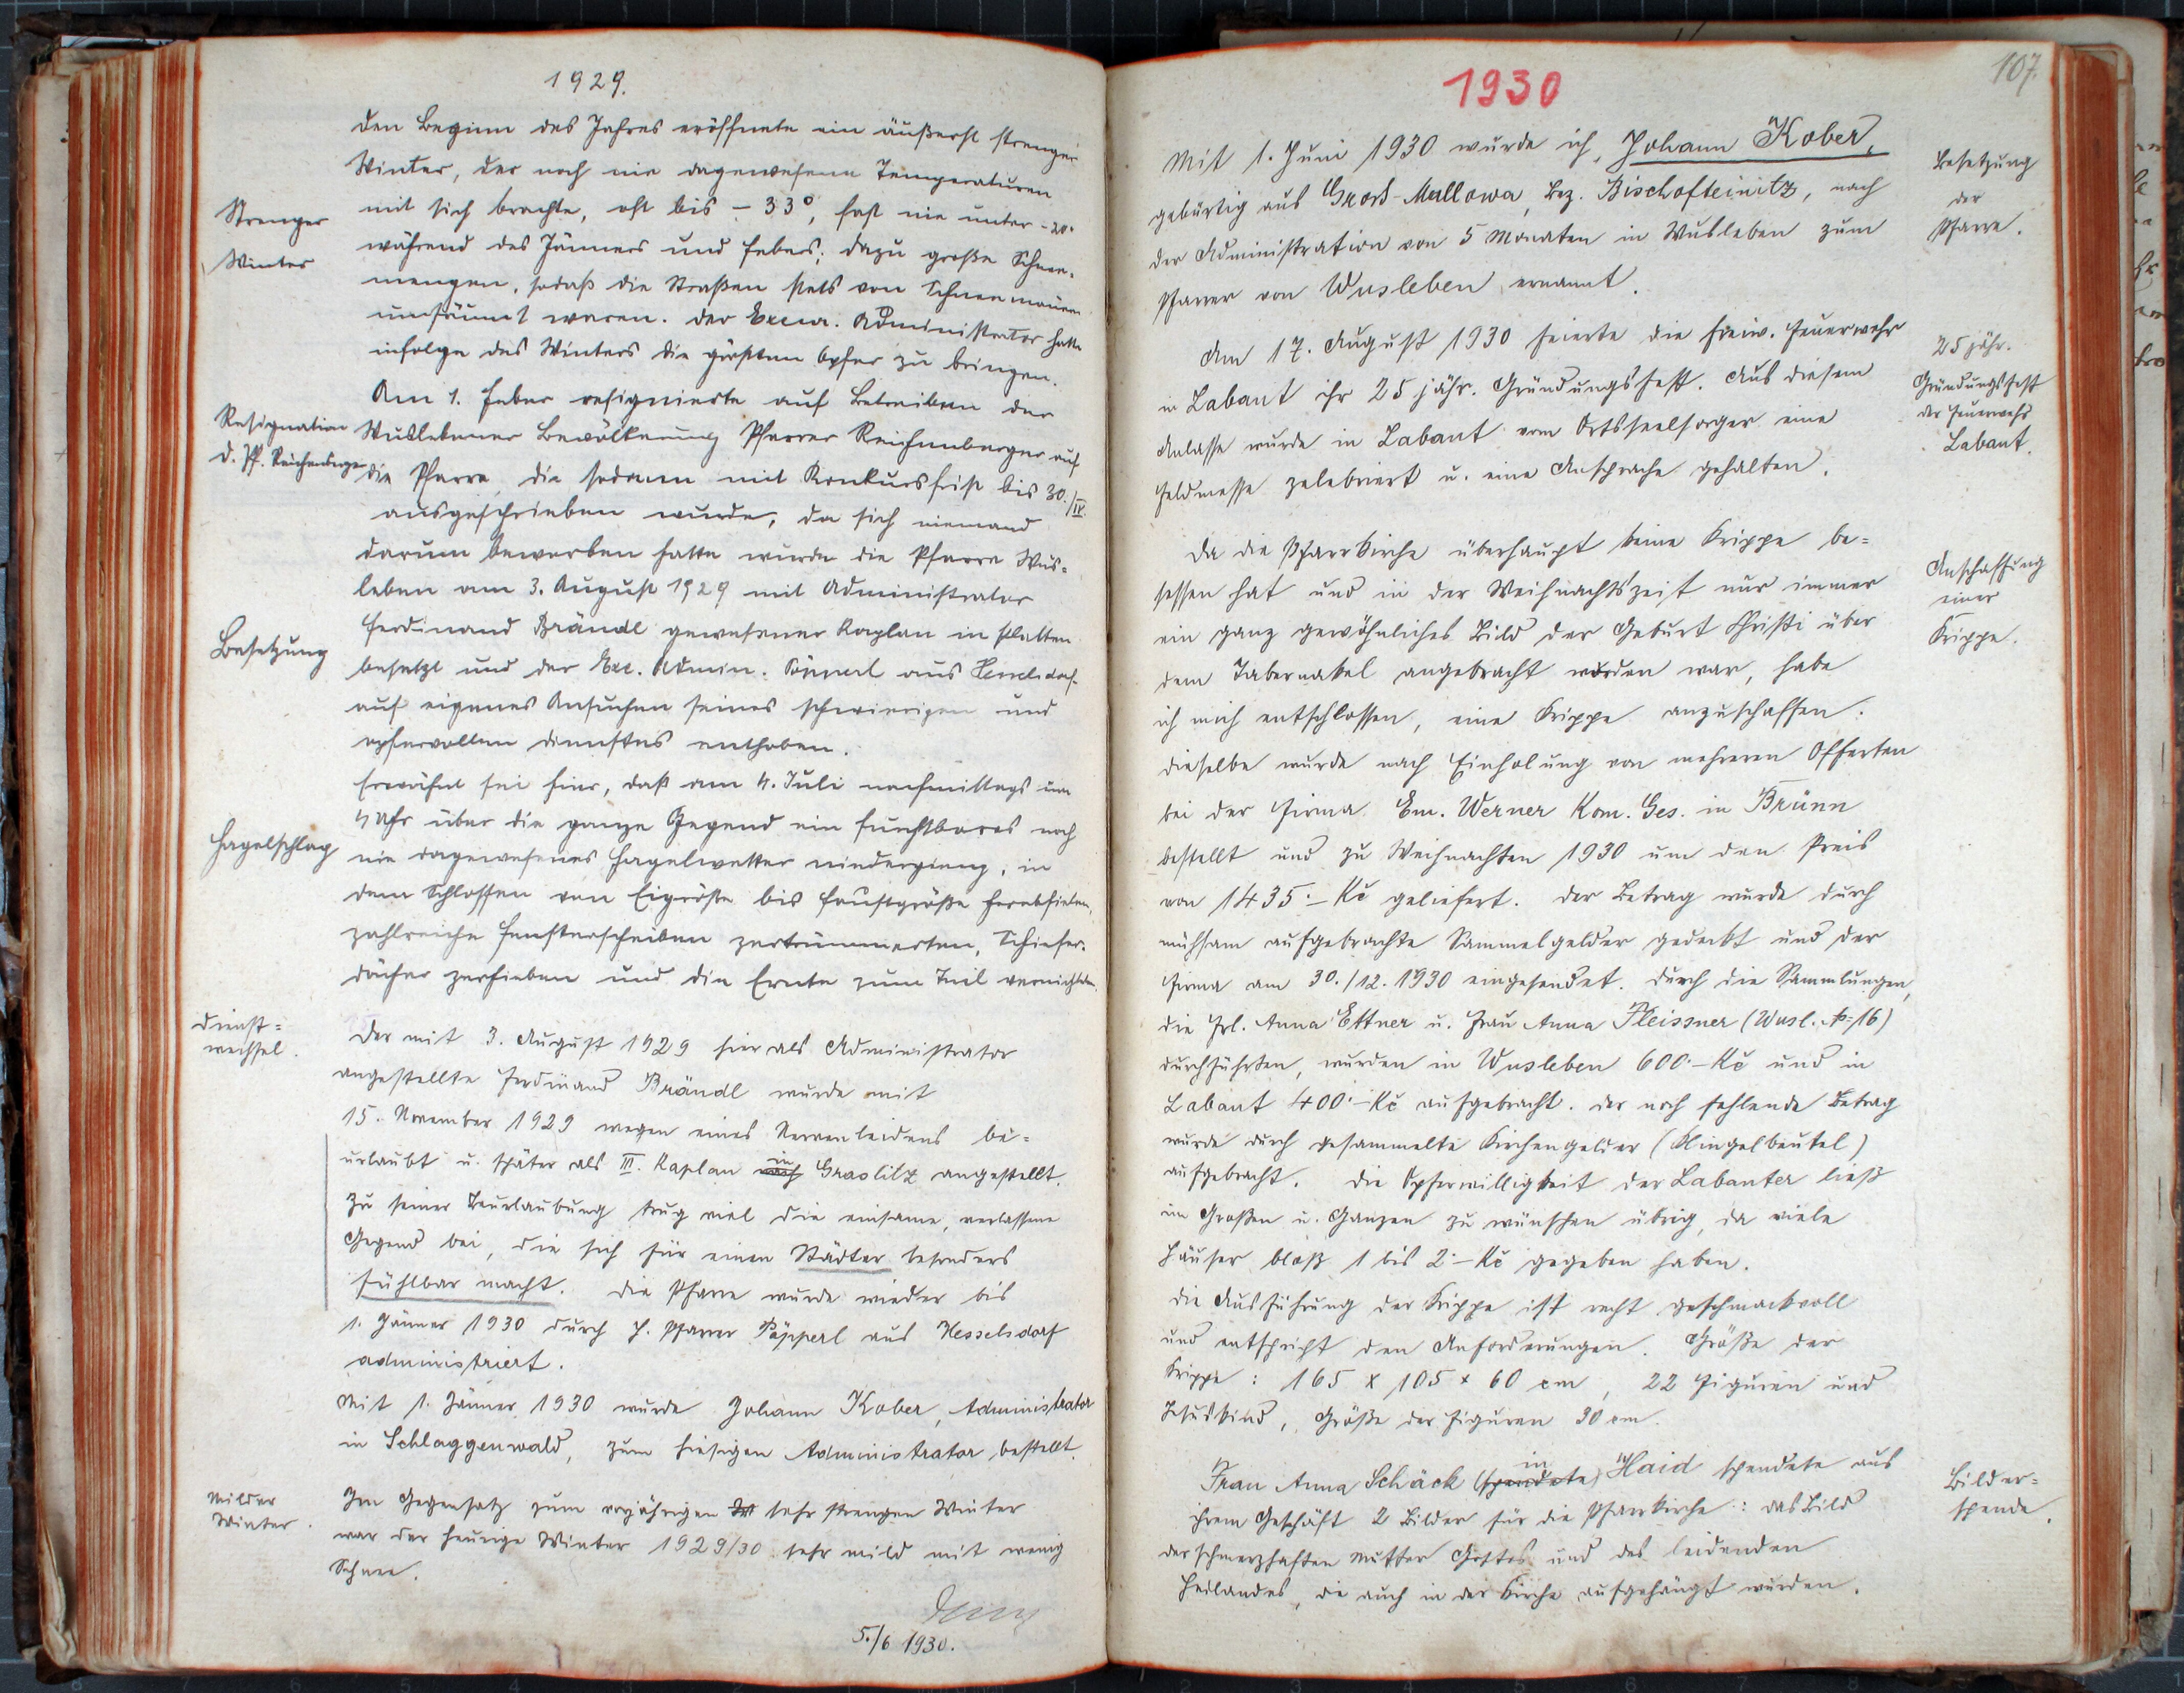 1929.
Den Beginn des Jahres eröffnete ein äußerst strenger
Winter, der noch nie dagewesene Temperaturen
mit sich brachte, oft bis - 33°, fast nie unter -20°
während des Jänners und Febers; dazu große Schnee-
mengen, sodaß die Straßen stets von Schneemauern
umsäumt waren. Der Excur. Administrator hatte
infolge des Winters die größten Opfer zu bringen.
Strenger
Winter
Am 1. Feber resignierte auf Betreiben der
Wuslebener Bevölkerung Pfarrer Reichenberger auf
die Pfarre, die sodann mit Konkursfrist bis 30./IV.
ausgeschrieben wurde, da sich niemand
darum beworben hatte wurde die Pfarre Wus-
leben am 3. August 1929 mit Administrator
Ferdinand Brändl gewesener Kaplan in Platten
besetzt und der Exc. Admin. Pöpperl aus Hesselsdorf
auf eigenes Ansuchen seines schwierigen und
opfervollen Dienstes enthoben.
Resignation
d. Pf. Reichenberger
Besetzung
Erwähnt sei hier, daß am 4. Juli nachmittags um
4 Uhr über die ganze Gegend ein furchtbares noch
nie dagewesenes Hagelwetter niederging, in
dem Schlossen von Eigröße bis Faustgröße herabfielen,
zahlreiche Fensterscheiben zertrümmerten, Schiefer-
dächer zerhieben und die Ernte zum Teil vernichteten.
Hagelschlag
Der mit 3. August 1929 hier als Administrator
angestellte Ferdinand Brändl wurde mit
15. November 1929 wegen eines Nervenleidens be=
urlaubt u. später als III. Kaplan nach in Graslitz angestellt.
Zu seiner Beurlaubung trug viel die einsame, verlassene
Gegend bei, die sich für einen Städter besonders
fühlbar macht. Die Pfarre wurde wieder bis
1. Jänner 1930 durch H. Pfarrer Pöpperl aus Hesselsdorf
administriert.
Dienst=
wechsel.
Mit 1. Jänner 1930 wurde Johann Kober, Administrator
in Schlaggenwald, zum hiesigen Administrator bestellt.
Im Gegensatz zum vorjährigen W sehr strengen Winter
war der heurige Winter 1929/30 sehr mild mit wenig
Schnee.
Milder
Winter.
5./6 1930.
107.
1930
Mit 1. Juni 1930 wurde ich, Johann Kober,
gebürtig aus Gross-Mallowa, Bez. Bischofteinitz, nach
der Administration von 5 Monaten in Wusleben zum
Pfarrer von Wusleben ernannt.
Besetzung
der
Pfarre.
Am 17. August 1930 feierte die freiw. Feuerwehr
in Labant ihr 25 jähr. Gründungsfest. Aus diesem
Anlasse wurde in Labant vom Ortsseelsorger eine
Feldmesse zelebriert u. eine Ansprache gehalten.
25 jähr.
Gründungsfest
der Feuerwehr
Labant.
Da die Pfarrkirche überhaupt keine Krippe be=
sessen hat und in der Weihnachtszeit nur immer
ein ganz gewöhnliches Bild der Geburt Christi über
dem Tabernakel angebracht worden war, habe
ich mich entschlossen, eine Krippe anzuschaffen.
Dieselbe wurde nach Einholung von mehreren Offerten
bei der Firma Em. Werner Kom. Ges. in Brünn
bestellt und zu Weihnachten 1930 um den Preis
von 1435·– Kč geliefert. Der Betrag wurde durch
mühsam aufgebrachte Sammelgelder gedeckt und der
Firma am 30./12. 1930 eingesendet. Durch die Sammlungen,
die Frl. Anna Ettner u. Frau Anna Pleissner (Wusl. No 16)
durchführten, wurden in Wusleben 600·– Kč und in
Labant 400·– Kč aufgebracht. Der noch fehlende Betrag
wurde durch gesammelte Kirchengelder (Klingelbeutel)
aufgebracht. Die Opferwilligkeit der Labanter ließ
im Großen u. Ganzen zu wünschen übrig, da viele
Häuser bloß 1 bis 2·– Kč gegeben haben.
Die Ausführung der Krippe ist recht geschmackvoll
und entspricht den Anforderungen. Größe der
Krippe: 165 x 105 x 60 cm, 22 Figuren und
Jesukind, Größe der Figuren 30 cm.
Anschaffung
einer
Krippe.
Frau Anna Schäck (spendete) in Haid spendete aus
ihrem Geschäft 2 Bilder für die Pfarrkirche: das Bild
der schmerzhaften Mutter Gottes und des leidenden
Heilandes, die auch in der Kirche aufgehängt wurden.
Bilder=
spende.